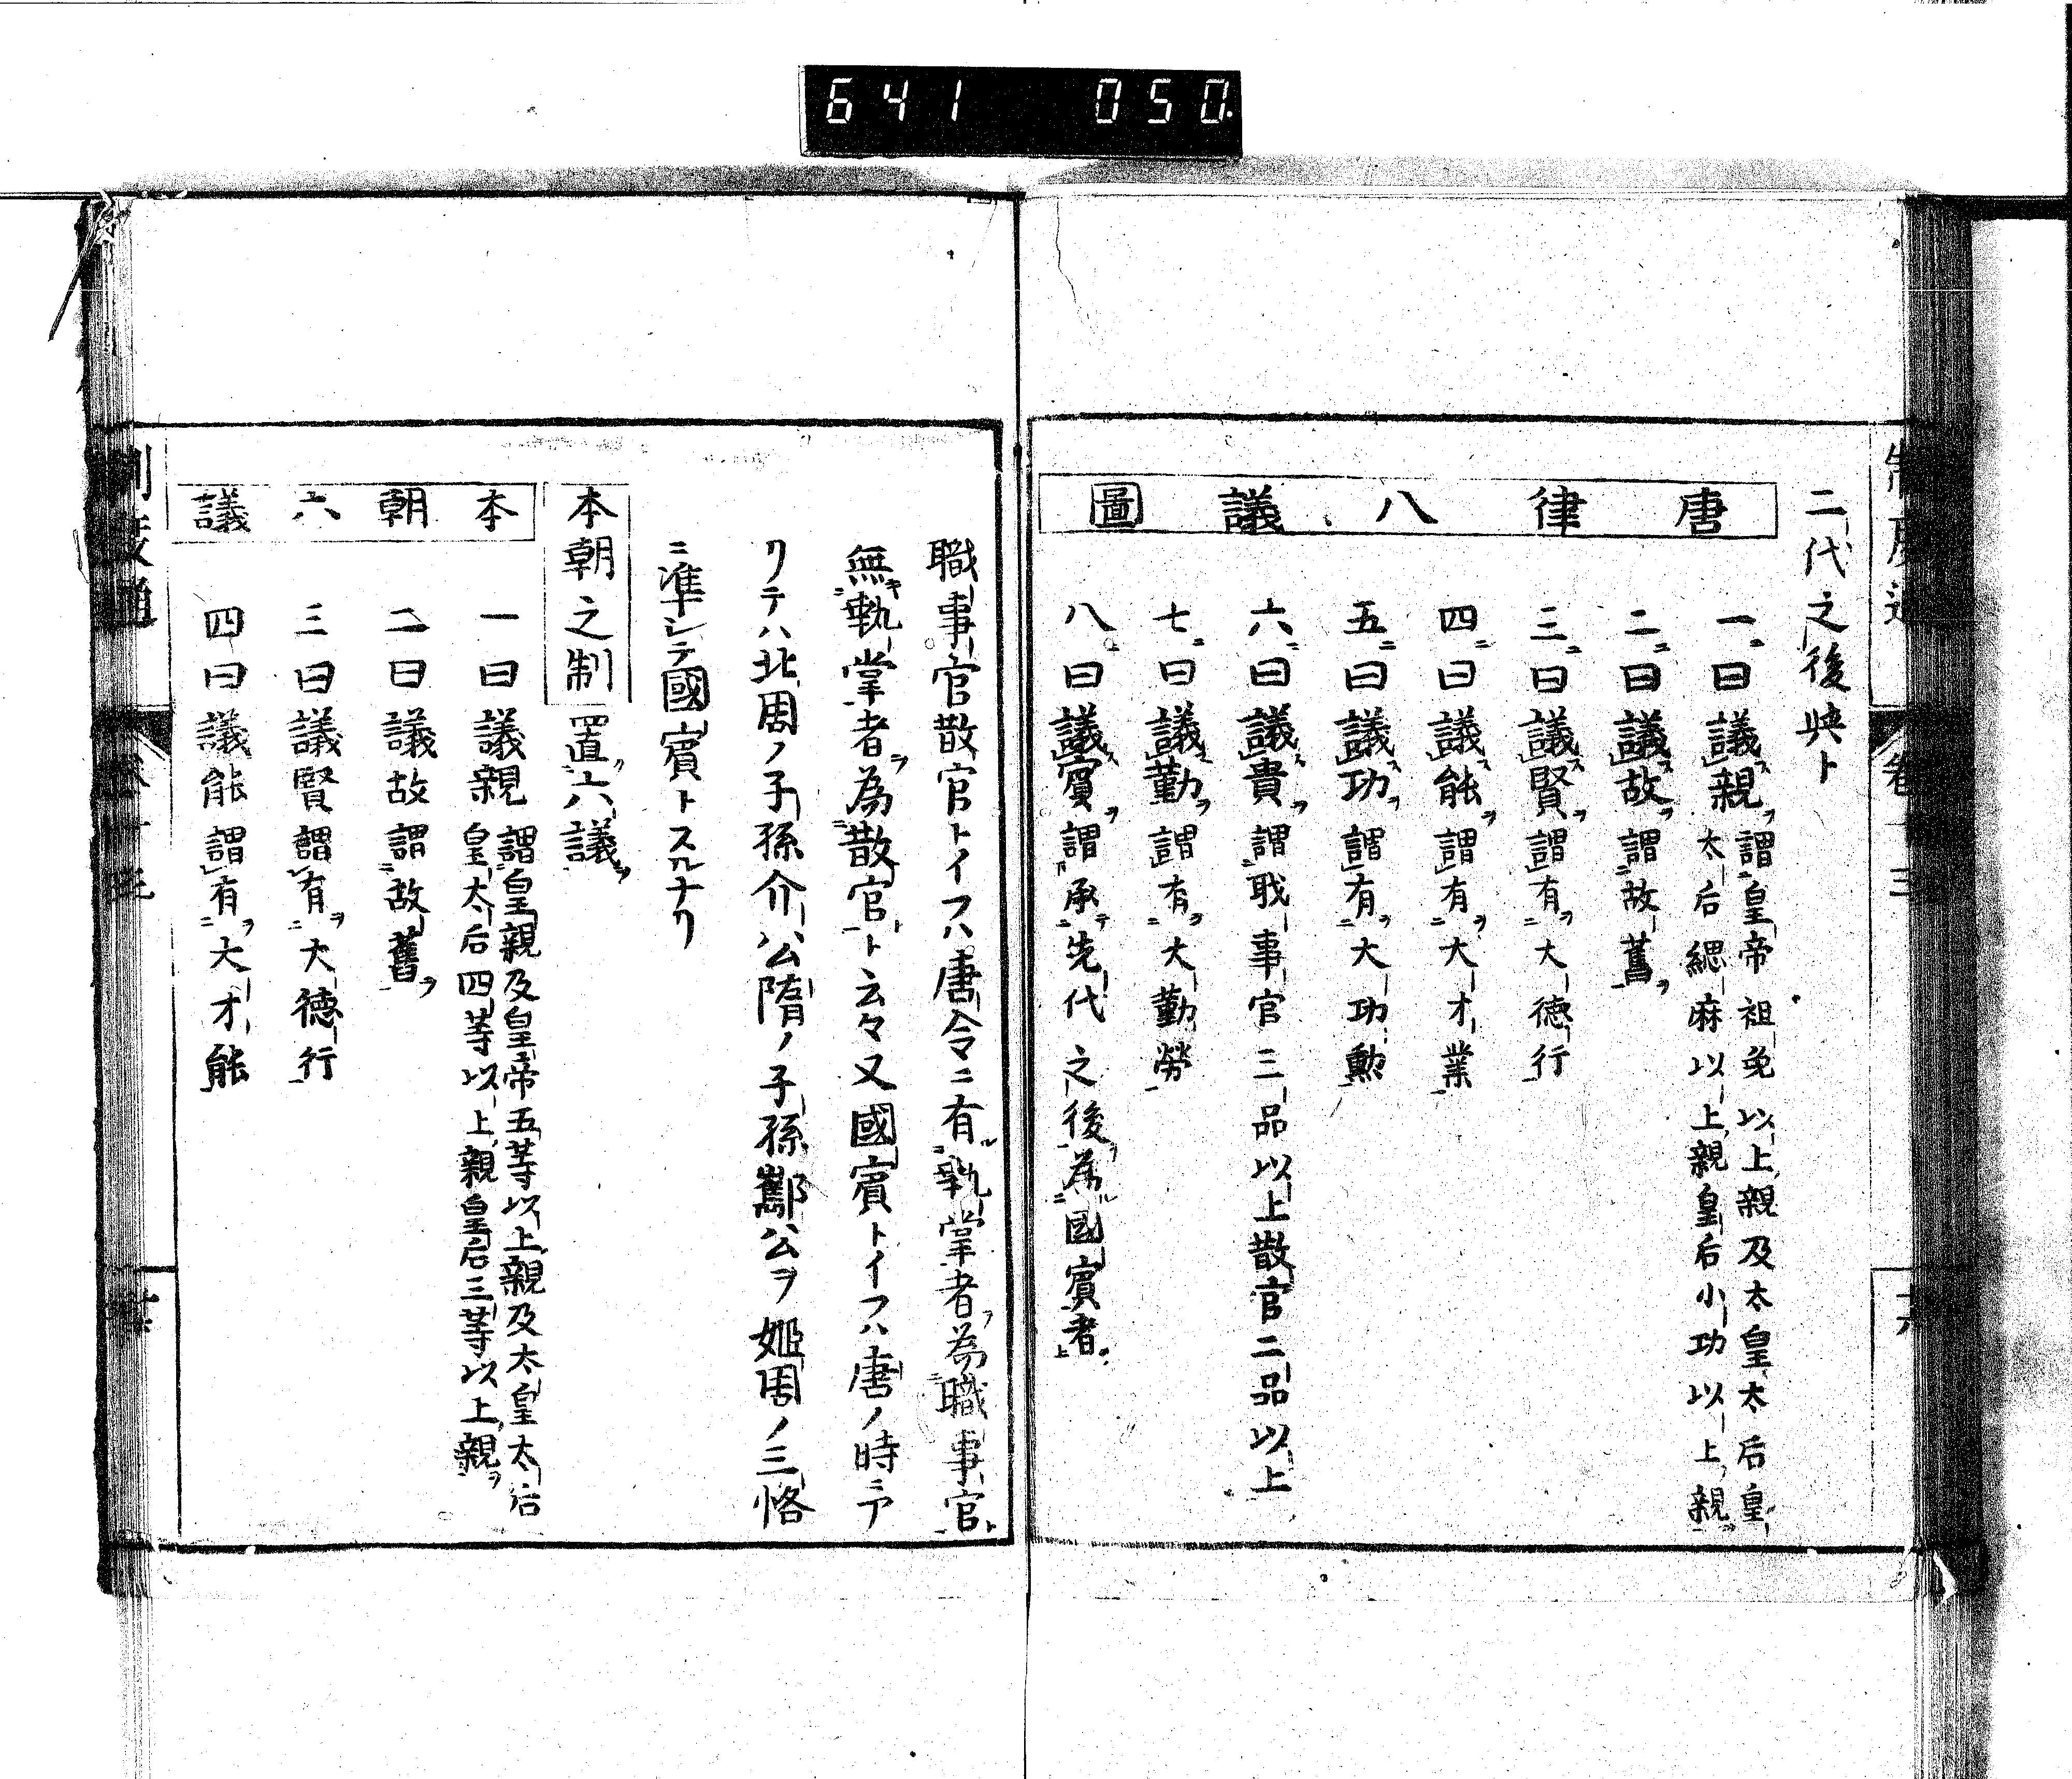 641 050.
二代之後與ト
唐律八議圖
一曰議親謂皇帝袒免以上親及太皇太后皇
太后緦麻以上親皇后小功以上親
二曰議故謂故舊
三曰議賢謂有大德行
四曰議能謂有大才業
五曰議功謂有大功勲
六曰議貴謂職事官三品以上散官二品以上
七曰議勤謂有大勤勞
八曰議賓謂承先代之後為國賓者
職事官散官トイフハ唐令ニ有執掌者為職事官
無執掌者為散官ト云々又國賓トイフハ唐ノ時ニア
リテハ北周ノ子孫介公隋ノ子孫酅公ヲ姬周ノ三恪
ニ準シテ國賓トスルナリ
本朝之制置六議
本朝六議
一曰議親謂皇親及皇帝五等以上親及太皇太后
皇太后四等以上親皇后三等以上親
二曰議故謂故舊
三曰議賢謂有大德行
四曰議能謂有大才能